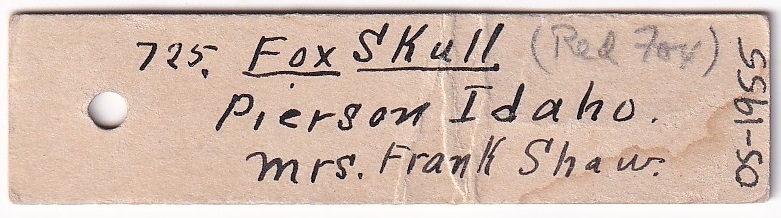 725. Fox Skull (Red Fox)
Pierson Idaho.
Mrs. Frank Shaw.
OS-1955